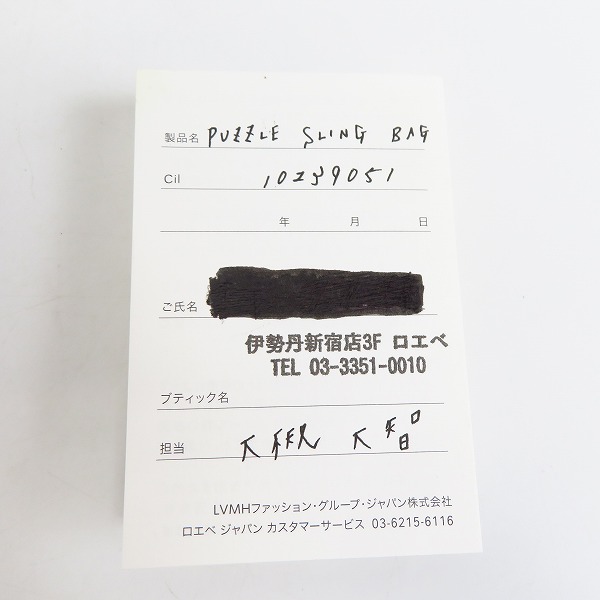 製品名 PUZZLE SLING BAG
Cil 10239051
年 月 日
ご氏名
伊勢丹新宿店3F ロエベ
TEL 03-3351-0010
ブティック名
担当 大智
LVMHファッション・グループ・ジャパン株式会社
ロエベ ジャパン カスタマーサービス 03-6215-6116